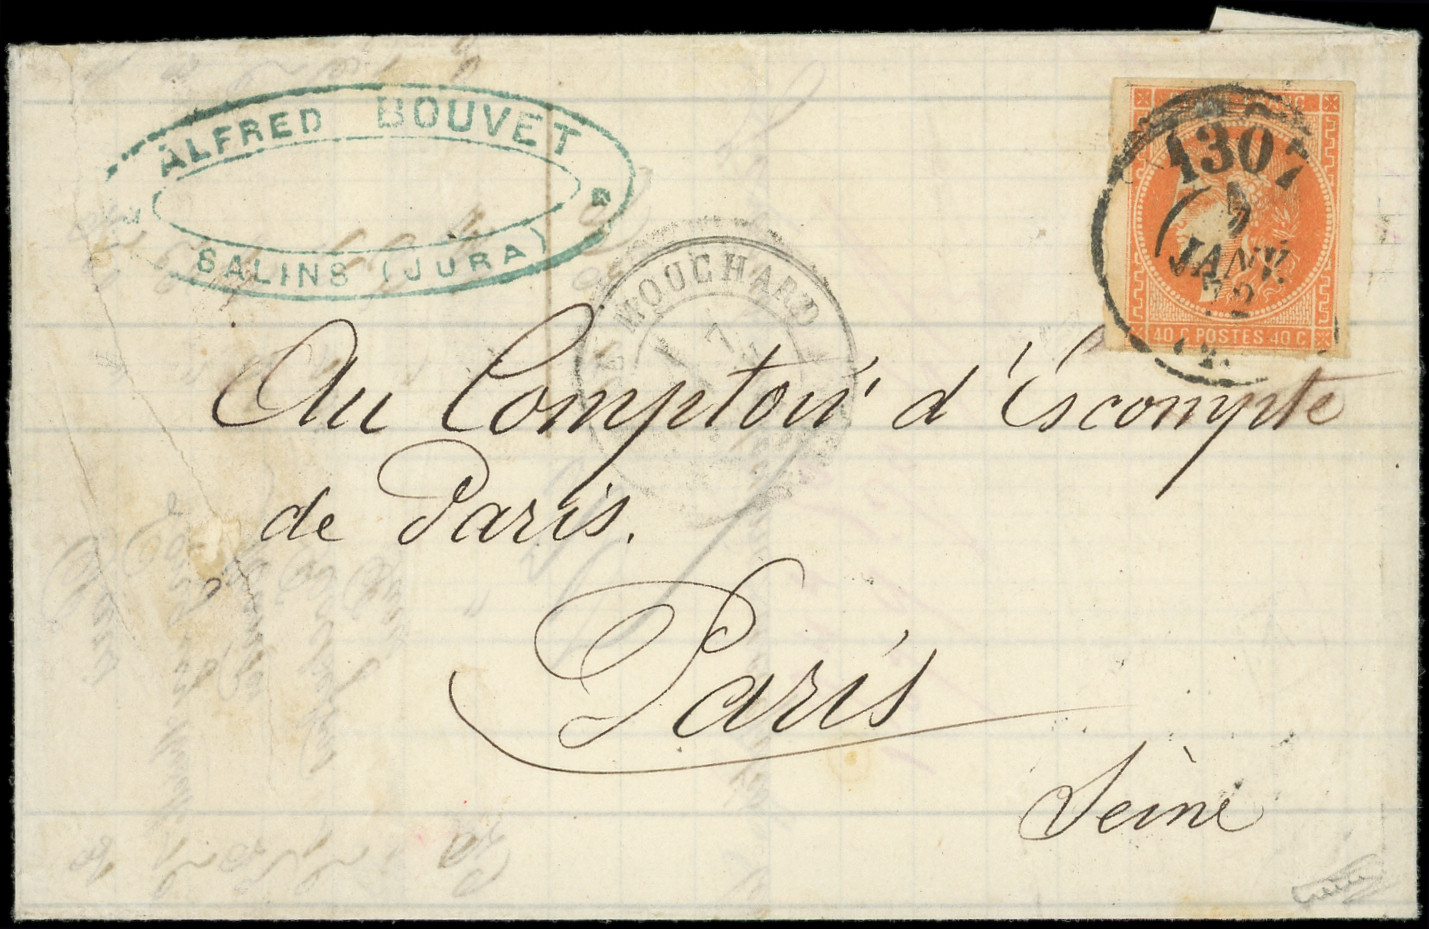 ALFRED BOUVET
SALINS (JURA)
1307
JANV.
72
40 C POSTES 40 C
MOUCHARD
7
Au Comptoir d'Escompte
de Paris.
Paris
Seine